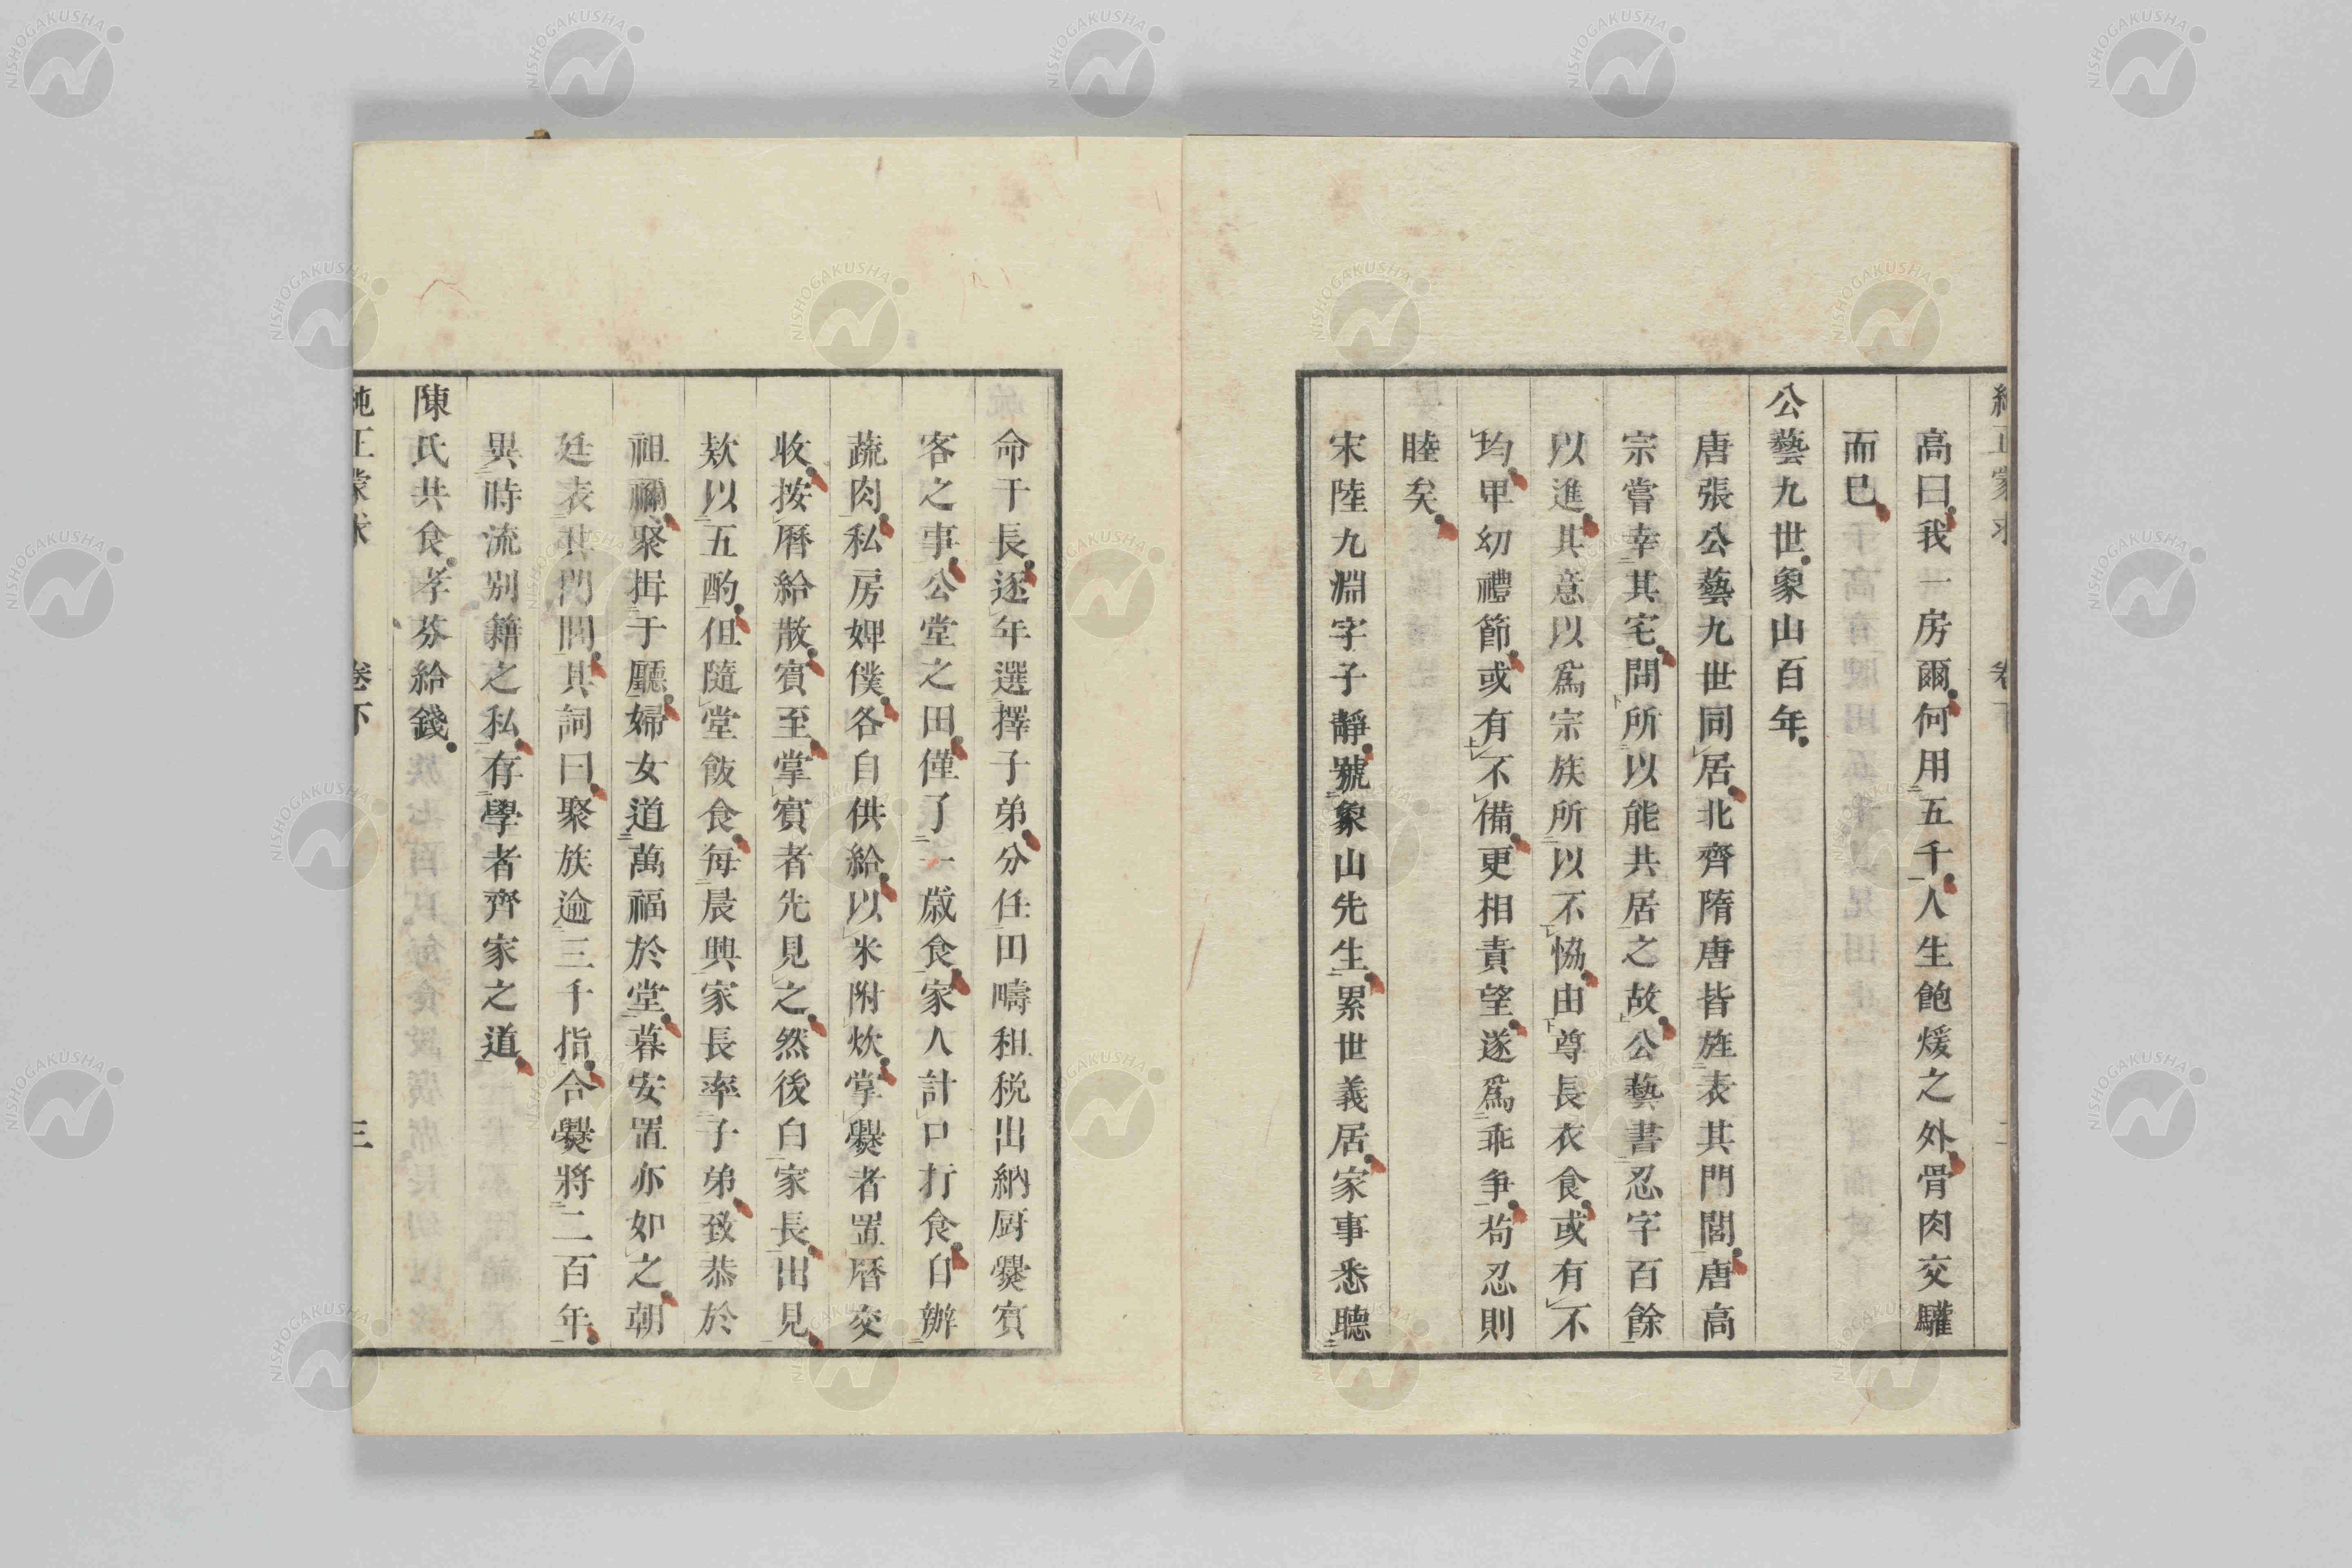 高曰我一房爾何用五千人生飽煖之外骨肉交驩
而巳
公藝九世象山百年
唐張公藝九世同居北齊隋唐皆旌表其門閭唐高
宗嘗幸其宅問所以能共居之故公藝書忍字百餘
以進其意以爲宗族所以不恊由尊長衣食或有不
均卑幼禮節或有不備更相責望遂爲乖争苟忍則
睦矣
宋陸九淵字子靜號象山先生累世義居家事悉聽
命于長逐年選擇子弟分任田疇租税出納厨爨賓
客之事公堂之田僅了一歳食家人計口打食自辦
蔬肉私房婢僕各自供給以米附炊掌爨者置暦交
收按暦給散賓至掌賓者先見之然後白家長出見
欵以五酌但隨堂飯食毎晨興家長率子弟致恭於
祖禰聚揖于廳婦女道萬福於堂暮安置亦如之朝
廷表其門閭其詞曰聚族逾三千指合爨將二百年
異時流别籍之私存學者齊家之道
陳氏共食孝芬給錢
純正蒙求 卷下 三
NISHOGAKUSHA